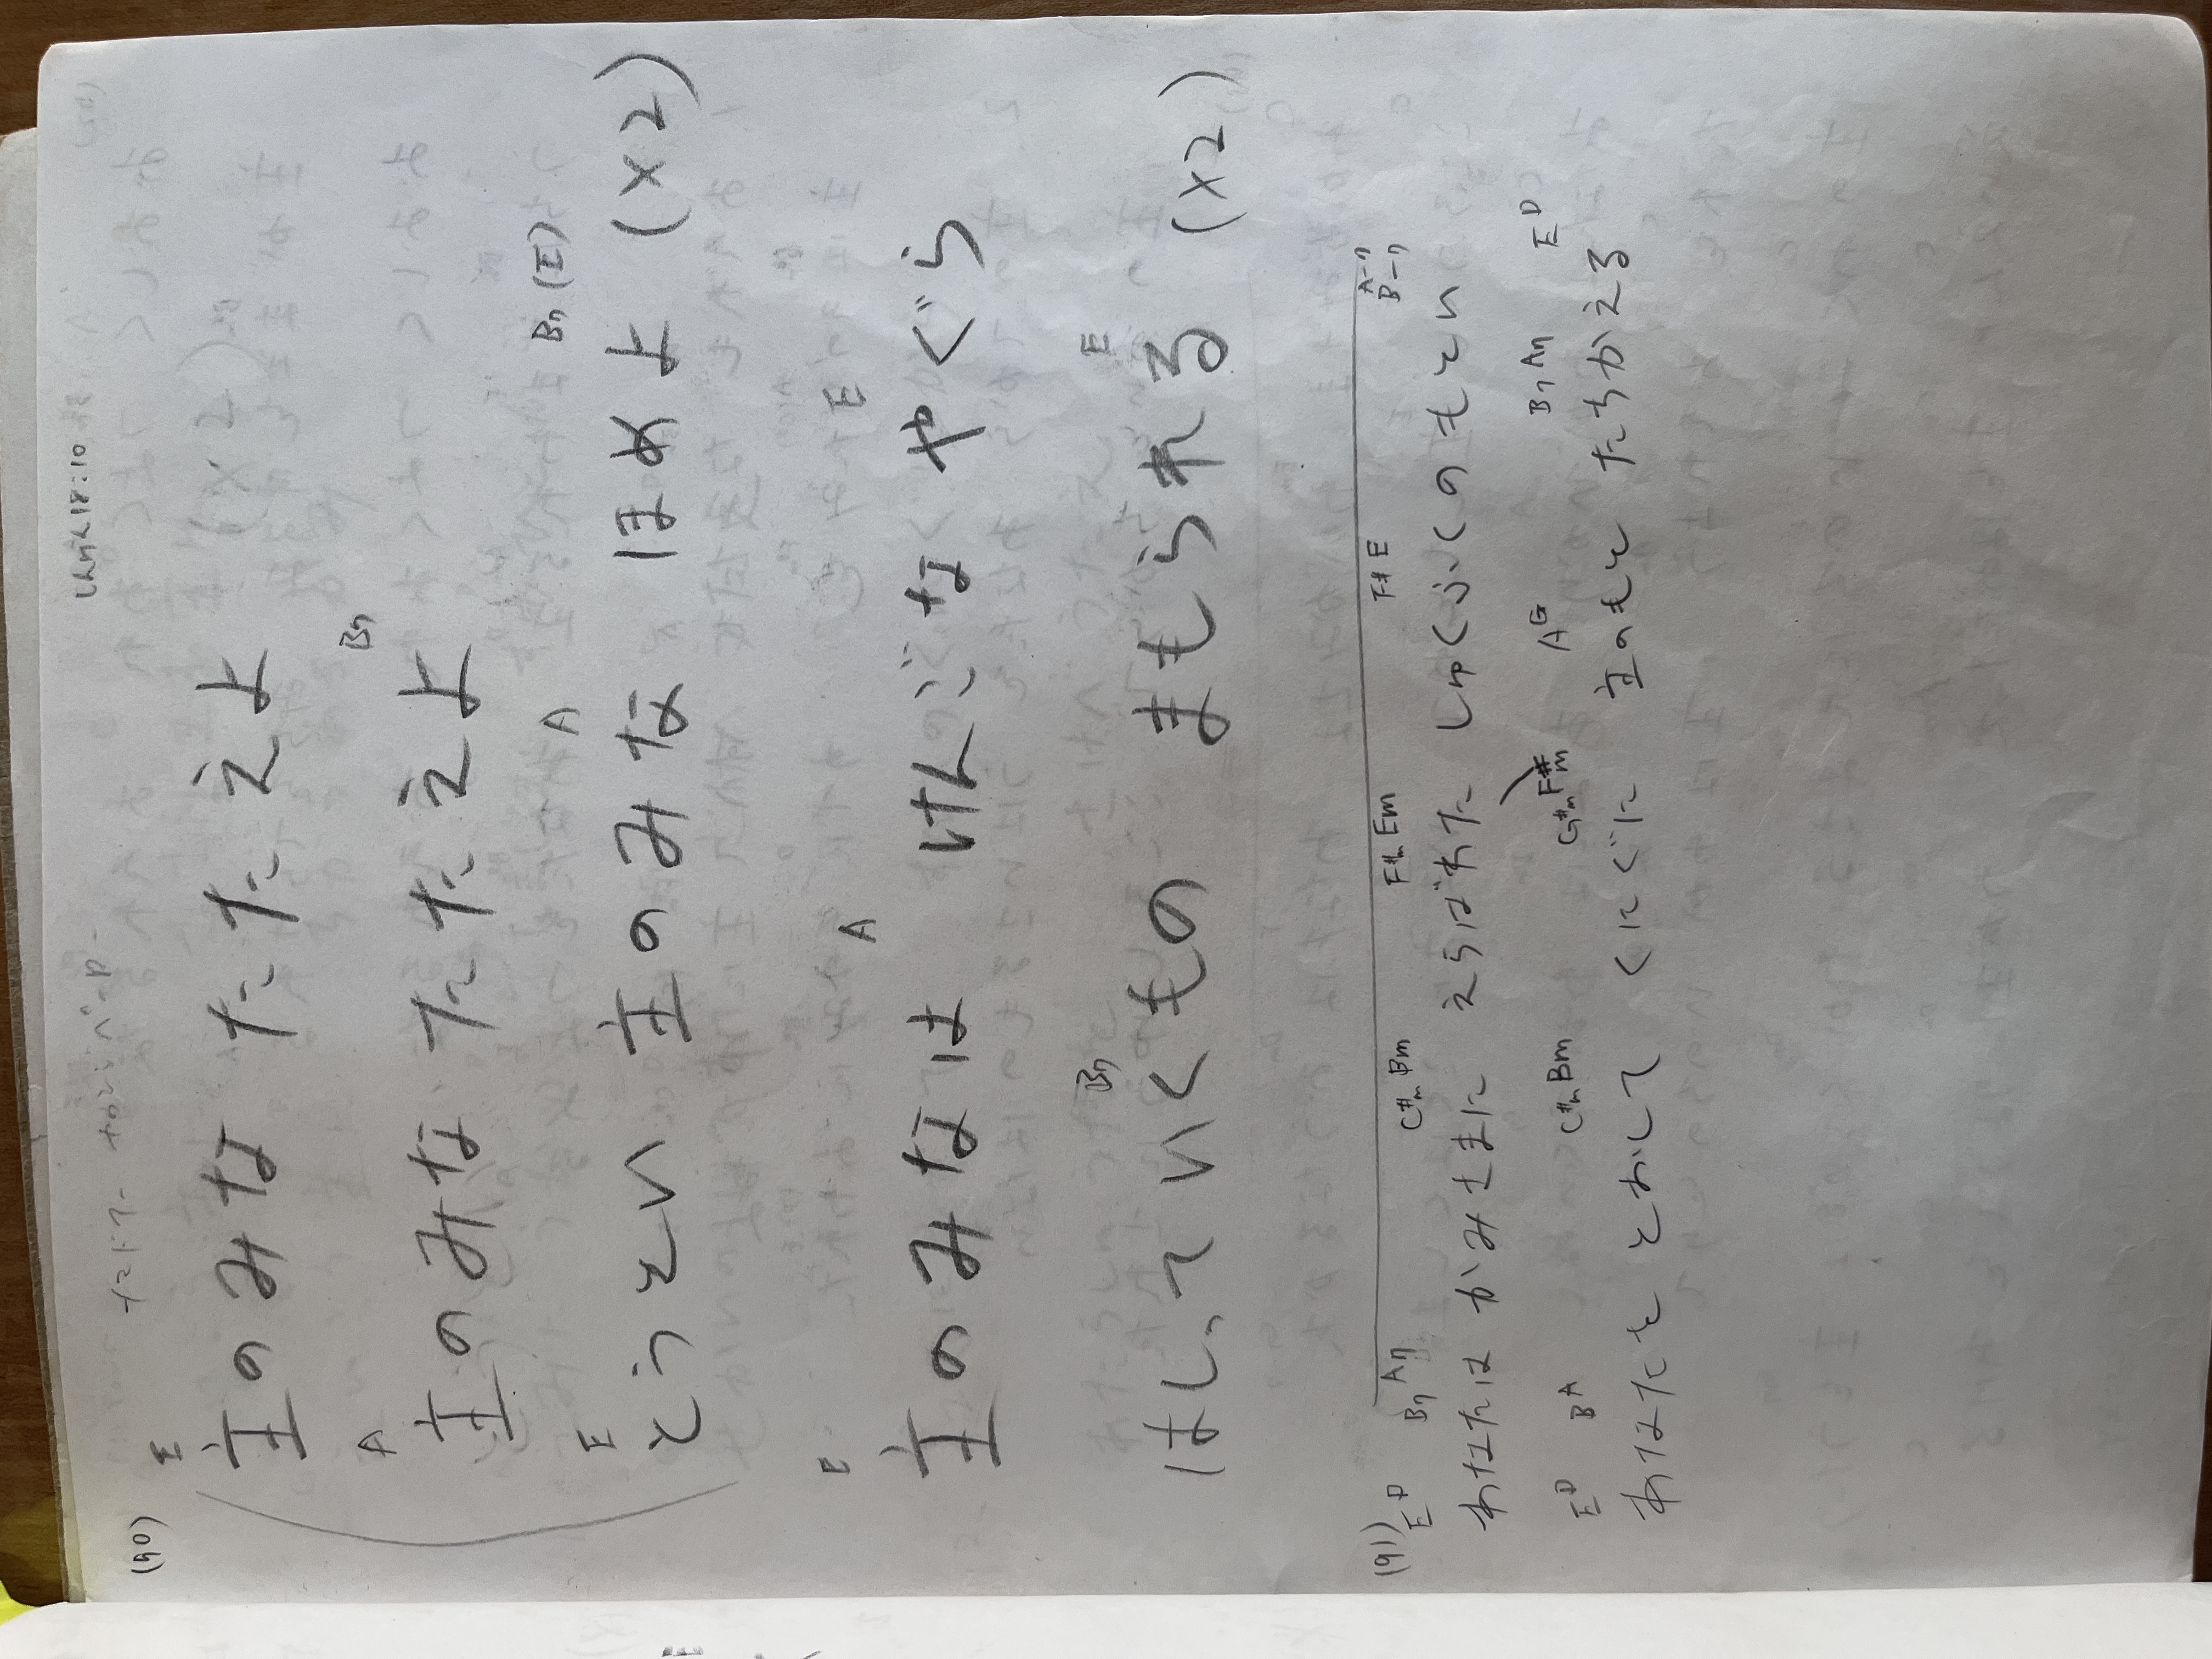 しんげん18:10
(90)
E
主のみな たたえよ
A B7
主のみな たたえよ
E A B7 (E)
とうとい 主のみな ほめよ (×2)
E A E
主のみなは けんごな やぐら
B7 E
はしっていくもの まもられる (×2)
(91)
E D B7 A7 C#m Bm F#m Em F# E
あなたは かみさまに えらばれた しゅくふくのもとい
E D B A C#m Bm G#m F#m A G B7 A7 E D
あなたを とおして くにぐに 主のもと たちかえる